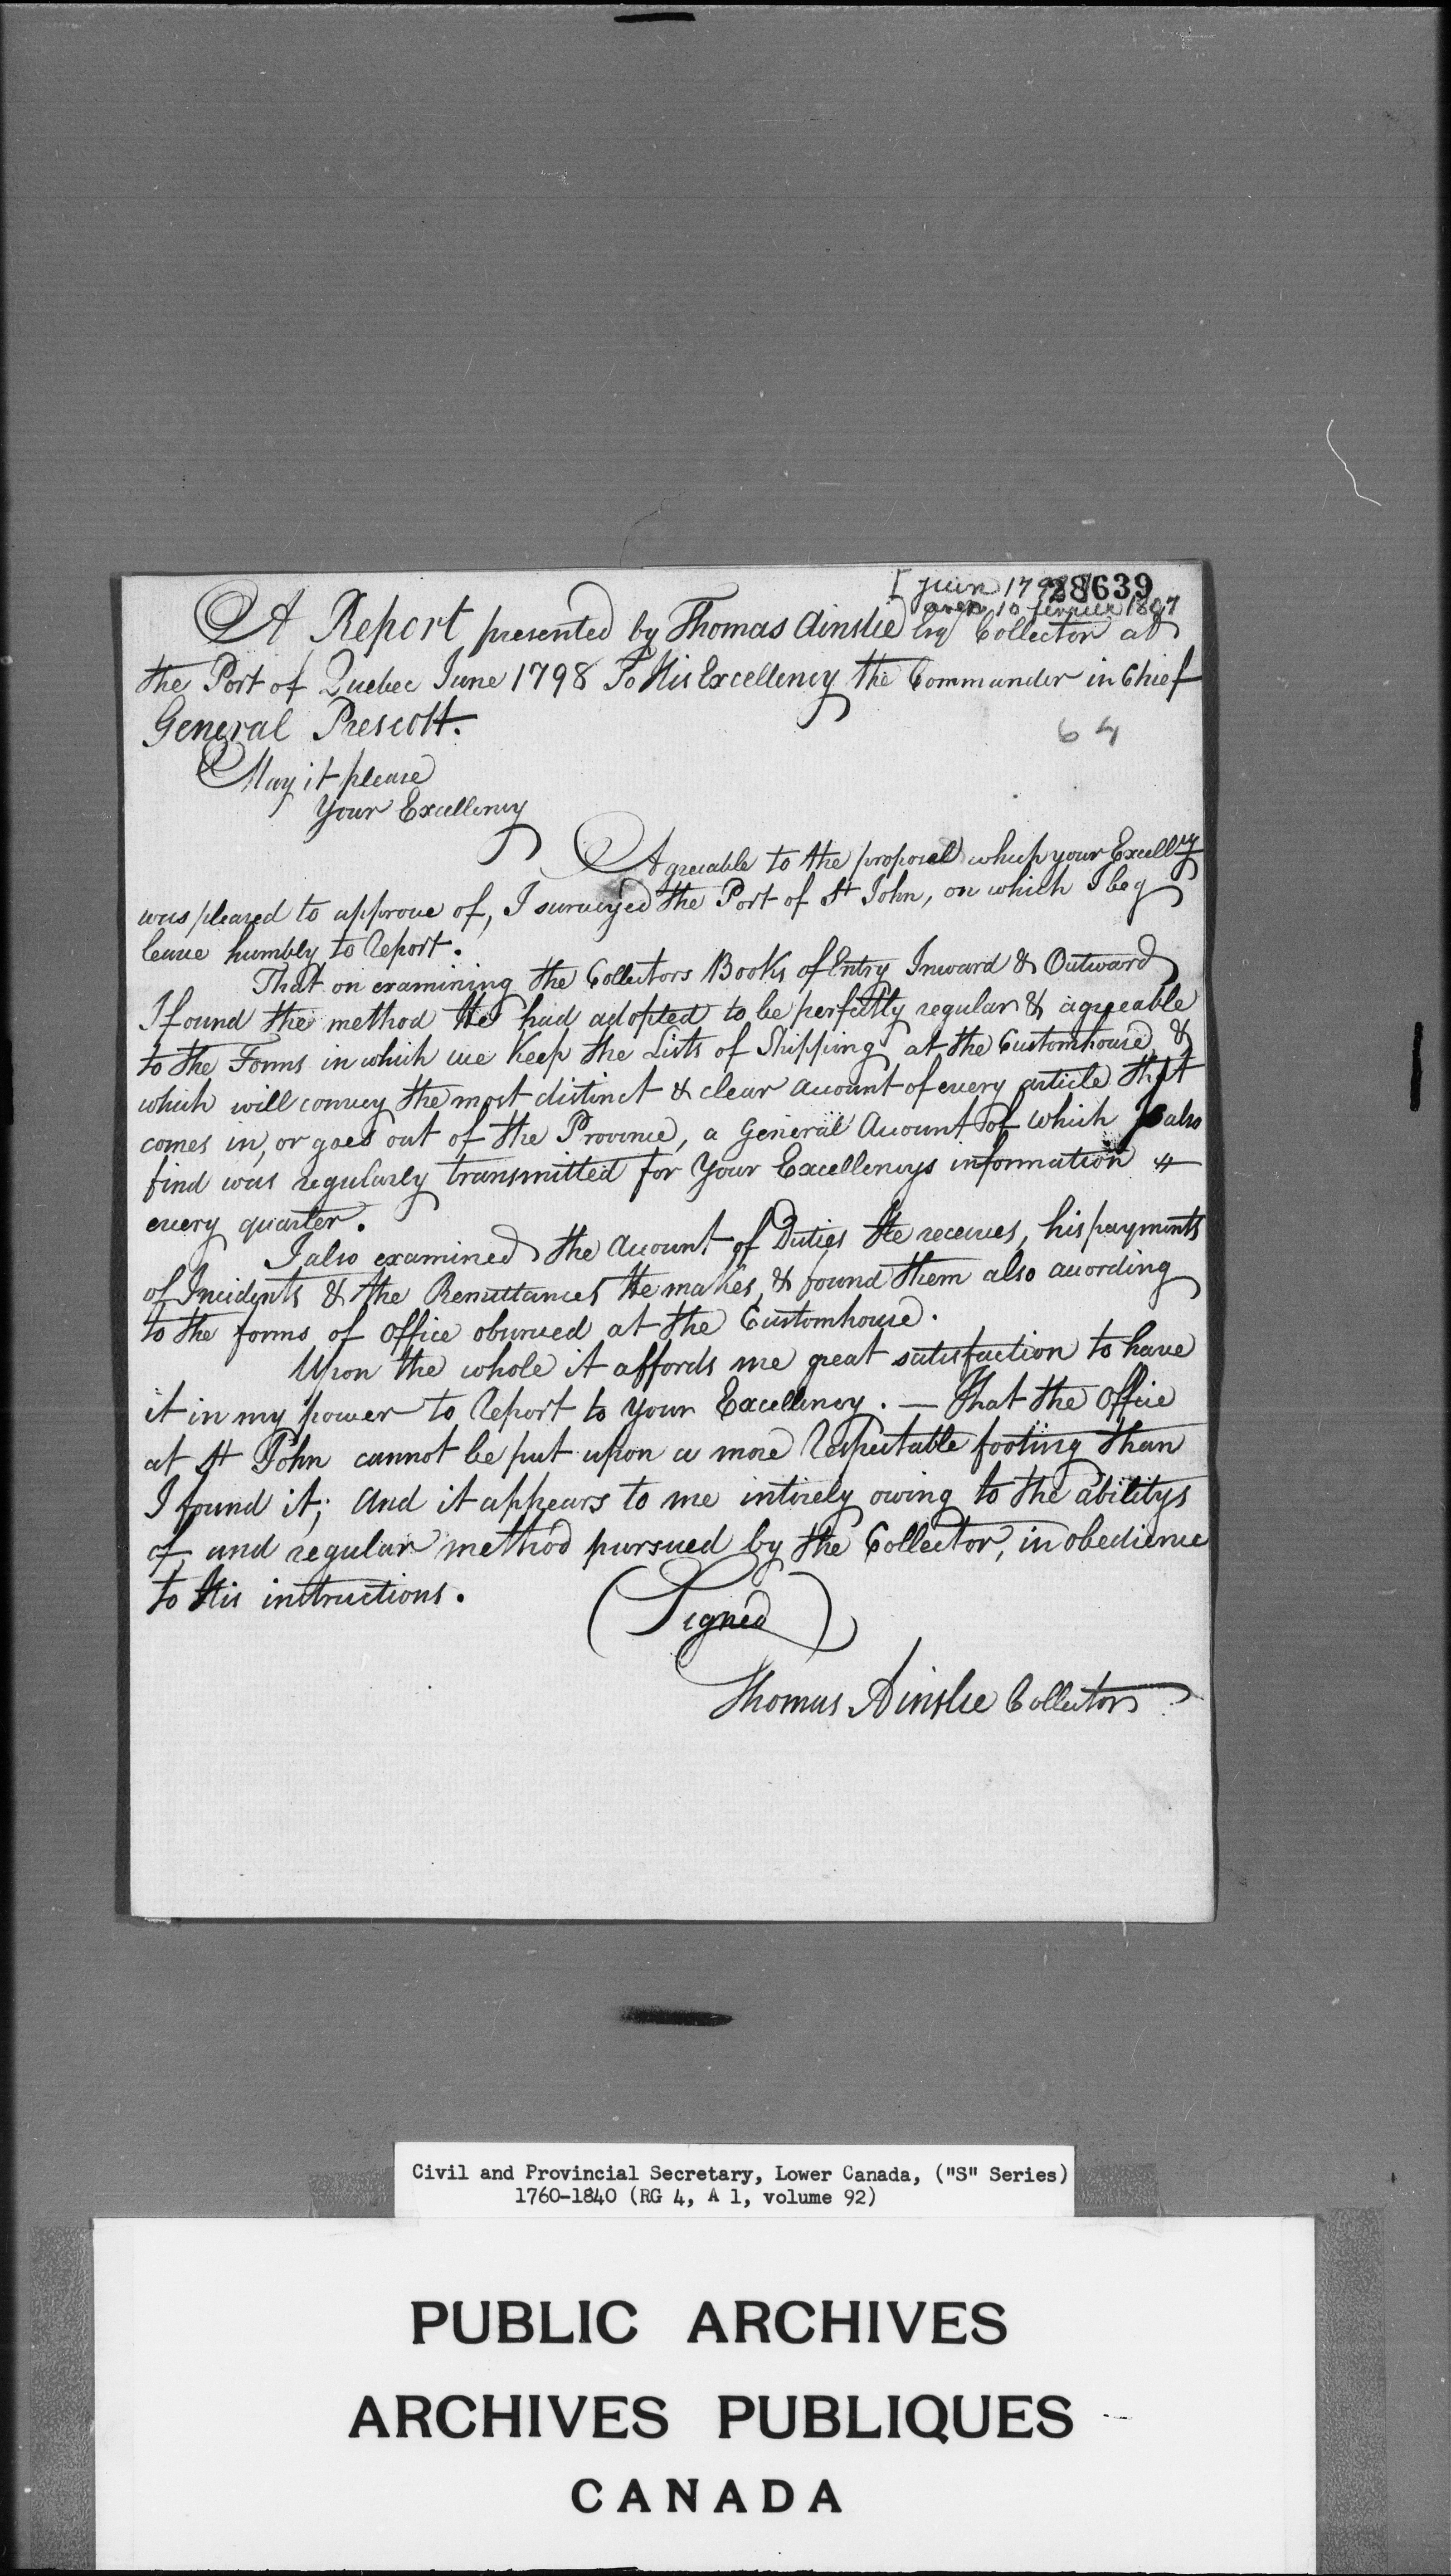 [juin 1798]
28639
avec 10 février 1807
A Report presented by Thomas Ainslie Esqr Collector at
the Port of Quebec June 1798 To His Excellency the Commander in Chief
General Prescott.
64
May it please
Your Excellency
Agreeable to the proposal which your Excelly
was pleased to approve of, I surveyed the Port of St John, on which I beg
leave humbly to Report.
That on examining the Collectors Books of Entry Inward & Outward
I found the method He had adopted to be perfectly regular & agreeable
to the Forms in which we Keep the Lists of Shipping at the Customhouse, &
which will convey the most distinct & clear account of every article that
comes in, or goes out of the Province, a General Account of which I also
find was regularly transmitted for Your Excellencys information
every quarter.
I also examined the Account of Duties He receives, his payments
of Incidents & the Remittances He makes, & found them also according
to the forms of Office observed at the Customhouse.
Upon the whole it affords me great satisfaction to have
it in my power to Report to Your Excellency. — That the Office
at St John cannot be put upon a more Respectable footing than
I found it; And it appears to me intirely owing to the abilitys
of, and regular method pursued by the Collector, in obedience
to His instructions.
(Signed)
Thomas Ainslie Collector
Civil and Provincial Secretary, Lower Canada, ("S" Series)
1760-1840 (RG 4, A 1, volume 92)
PUBLIC ARCHIVES
ARCHIVES PUBLIQUES
CANADA